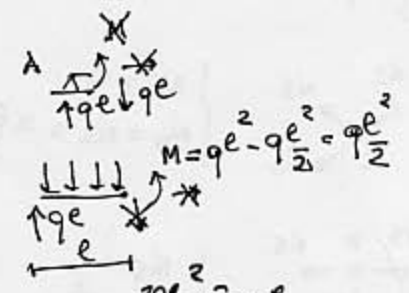 M
A
qe qe
M = qe² - qe²/2 = qe²/2
qe
e